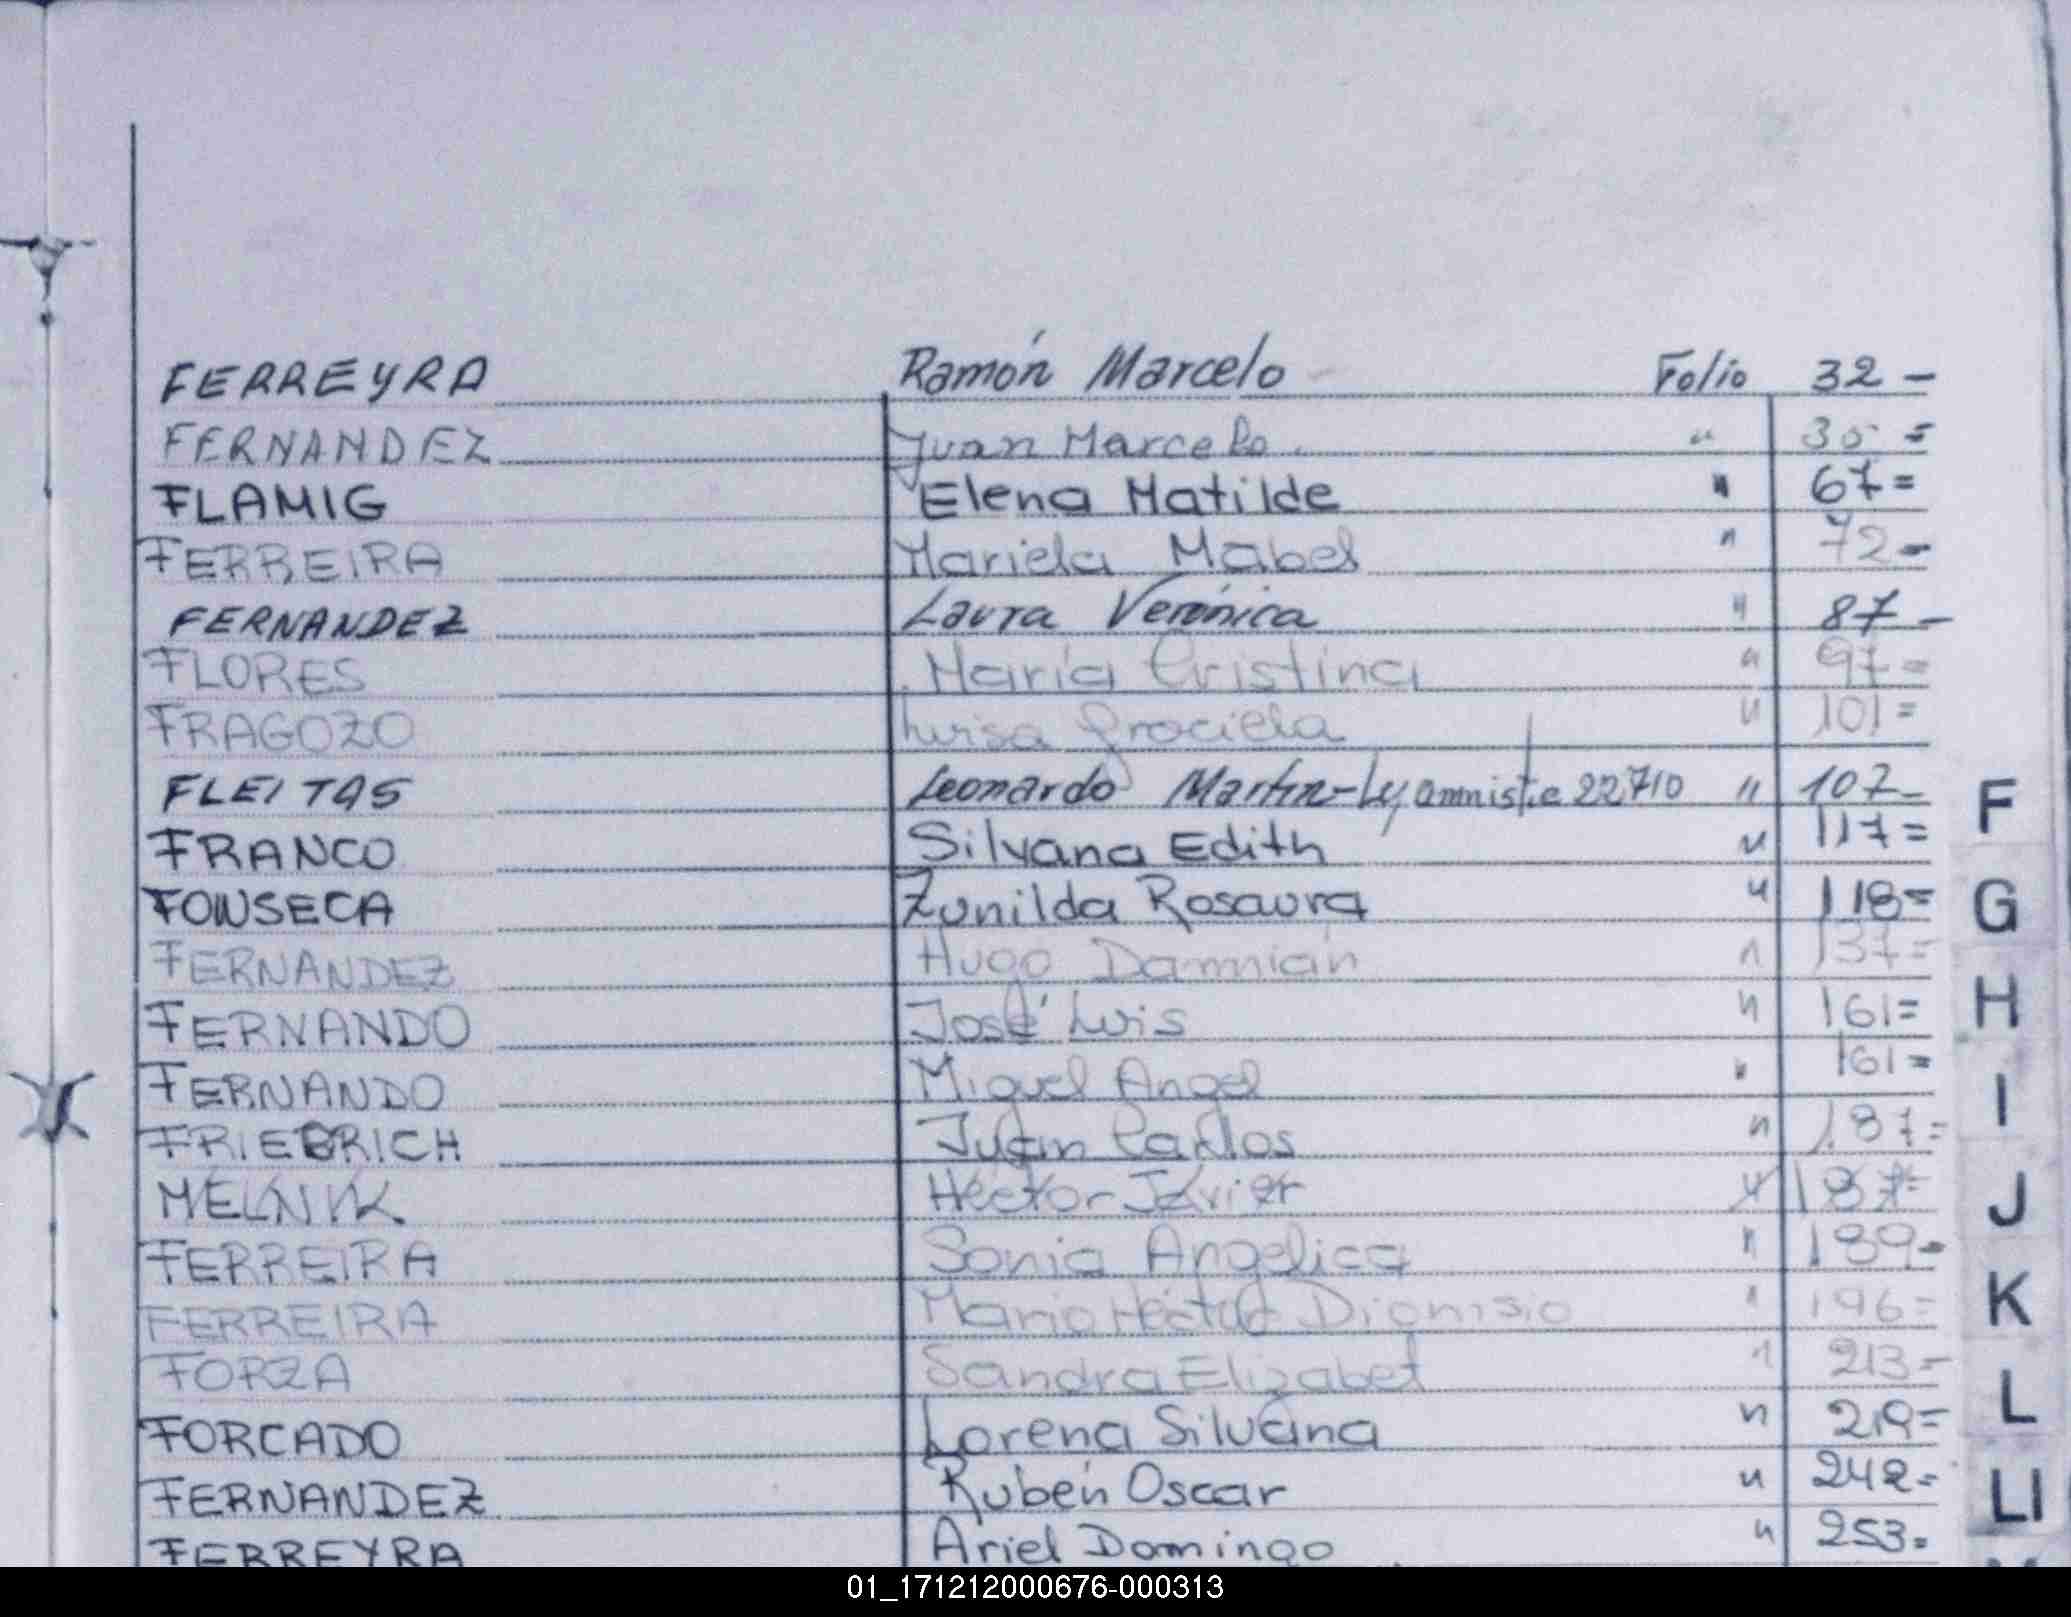 FERREYRA Ramón Marcelo Folio 32 -
FERNANDEZ Juan Marcelo. " 30 =
FLAMIG Elena Matilde " 67 =
FERREIRA Mariela Mabel " 72 -
FERNANDEZ Laura Verónica " 87 -
FLORES María Cristina " 97 =
FRAGOZO Luisa Graciela " 101 =
FLEITAS Leonardo Martin - Ley amnistie 22710 " 107 -
FRANCO Silvana Edith " 117 =
FONSECA Zunilda Rosaura " 118 =
FERNANDEZ Hugo Damnián " 137 =
FERNANDO José Luis " 161 =
FERNANDO Miguel Angel " 161 =
FRIEBRICH Juan Carlos " 187 =
MELNIK Héctor Javier " 187 =
FERREIRA Sonia Angelica " 189 -
FERREIRA Mario Héctor Dionisio " 196 =
FORZA Sandra Elizabet " 213 -
FORCADO Lorena Silvana " 219 =
FERNANDEZ Rubén Oscar " 242 =
FERREYRA Ariel Domingo " 253 =
F
G
H
I
J
K
L
Ll
01_171212000676-000313